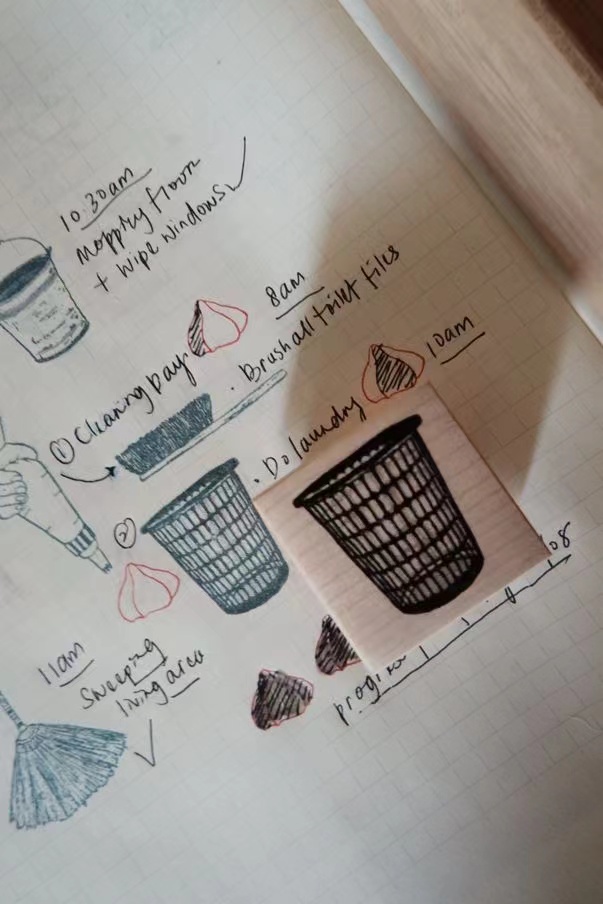 10.30am
mopping floor
+ wipe windows
8am
① Cleaning Day
• Brush all toilet tiles
10am
• Do laundry
②
11am
Sweeping
living area